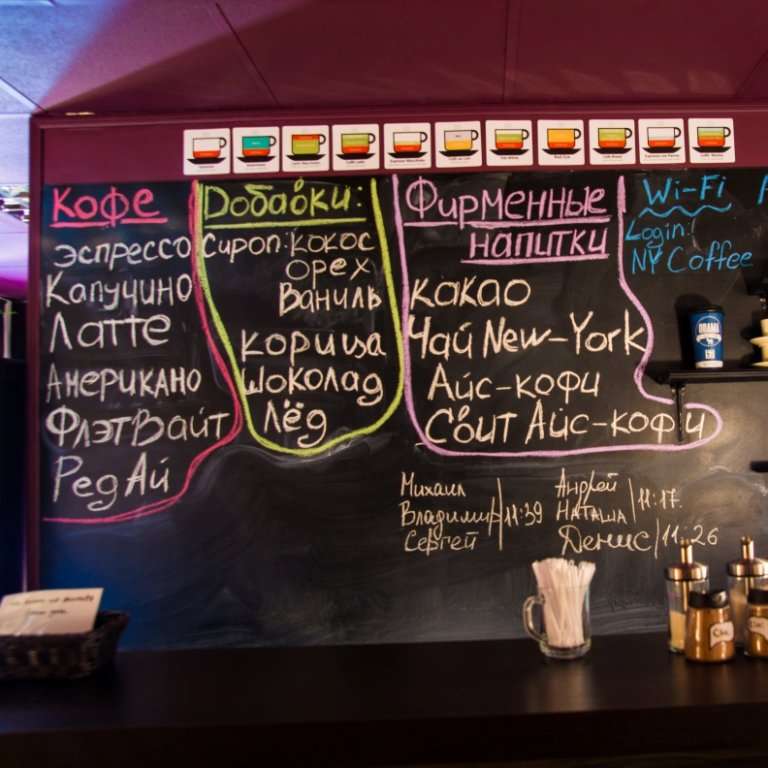 Кофе
эспрессо
Капучино
Латте
Американо
ФлэтВайт
Ред Ай
Добавки:
Сироп: кокос
орех
Ваниль
корица
Шоколад
Лёд
Фирменные
напитки
какао
Чай New-York
Айс-кофи
Свит Айс-кофи
Wi-Fi
Login:
NY Coffee
Михаил
Владимир 11:39
Сергей
Андрей 11:17.
Наташа
Денис 11:26
OBAMA